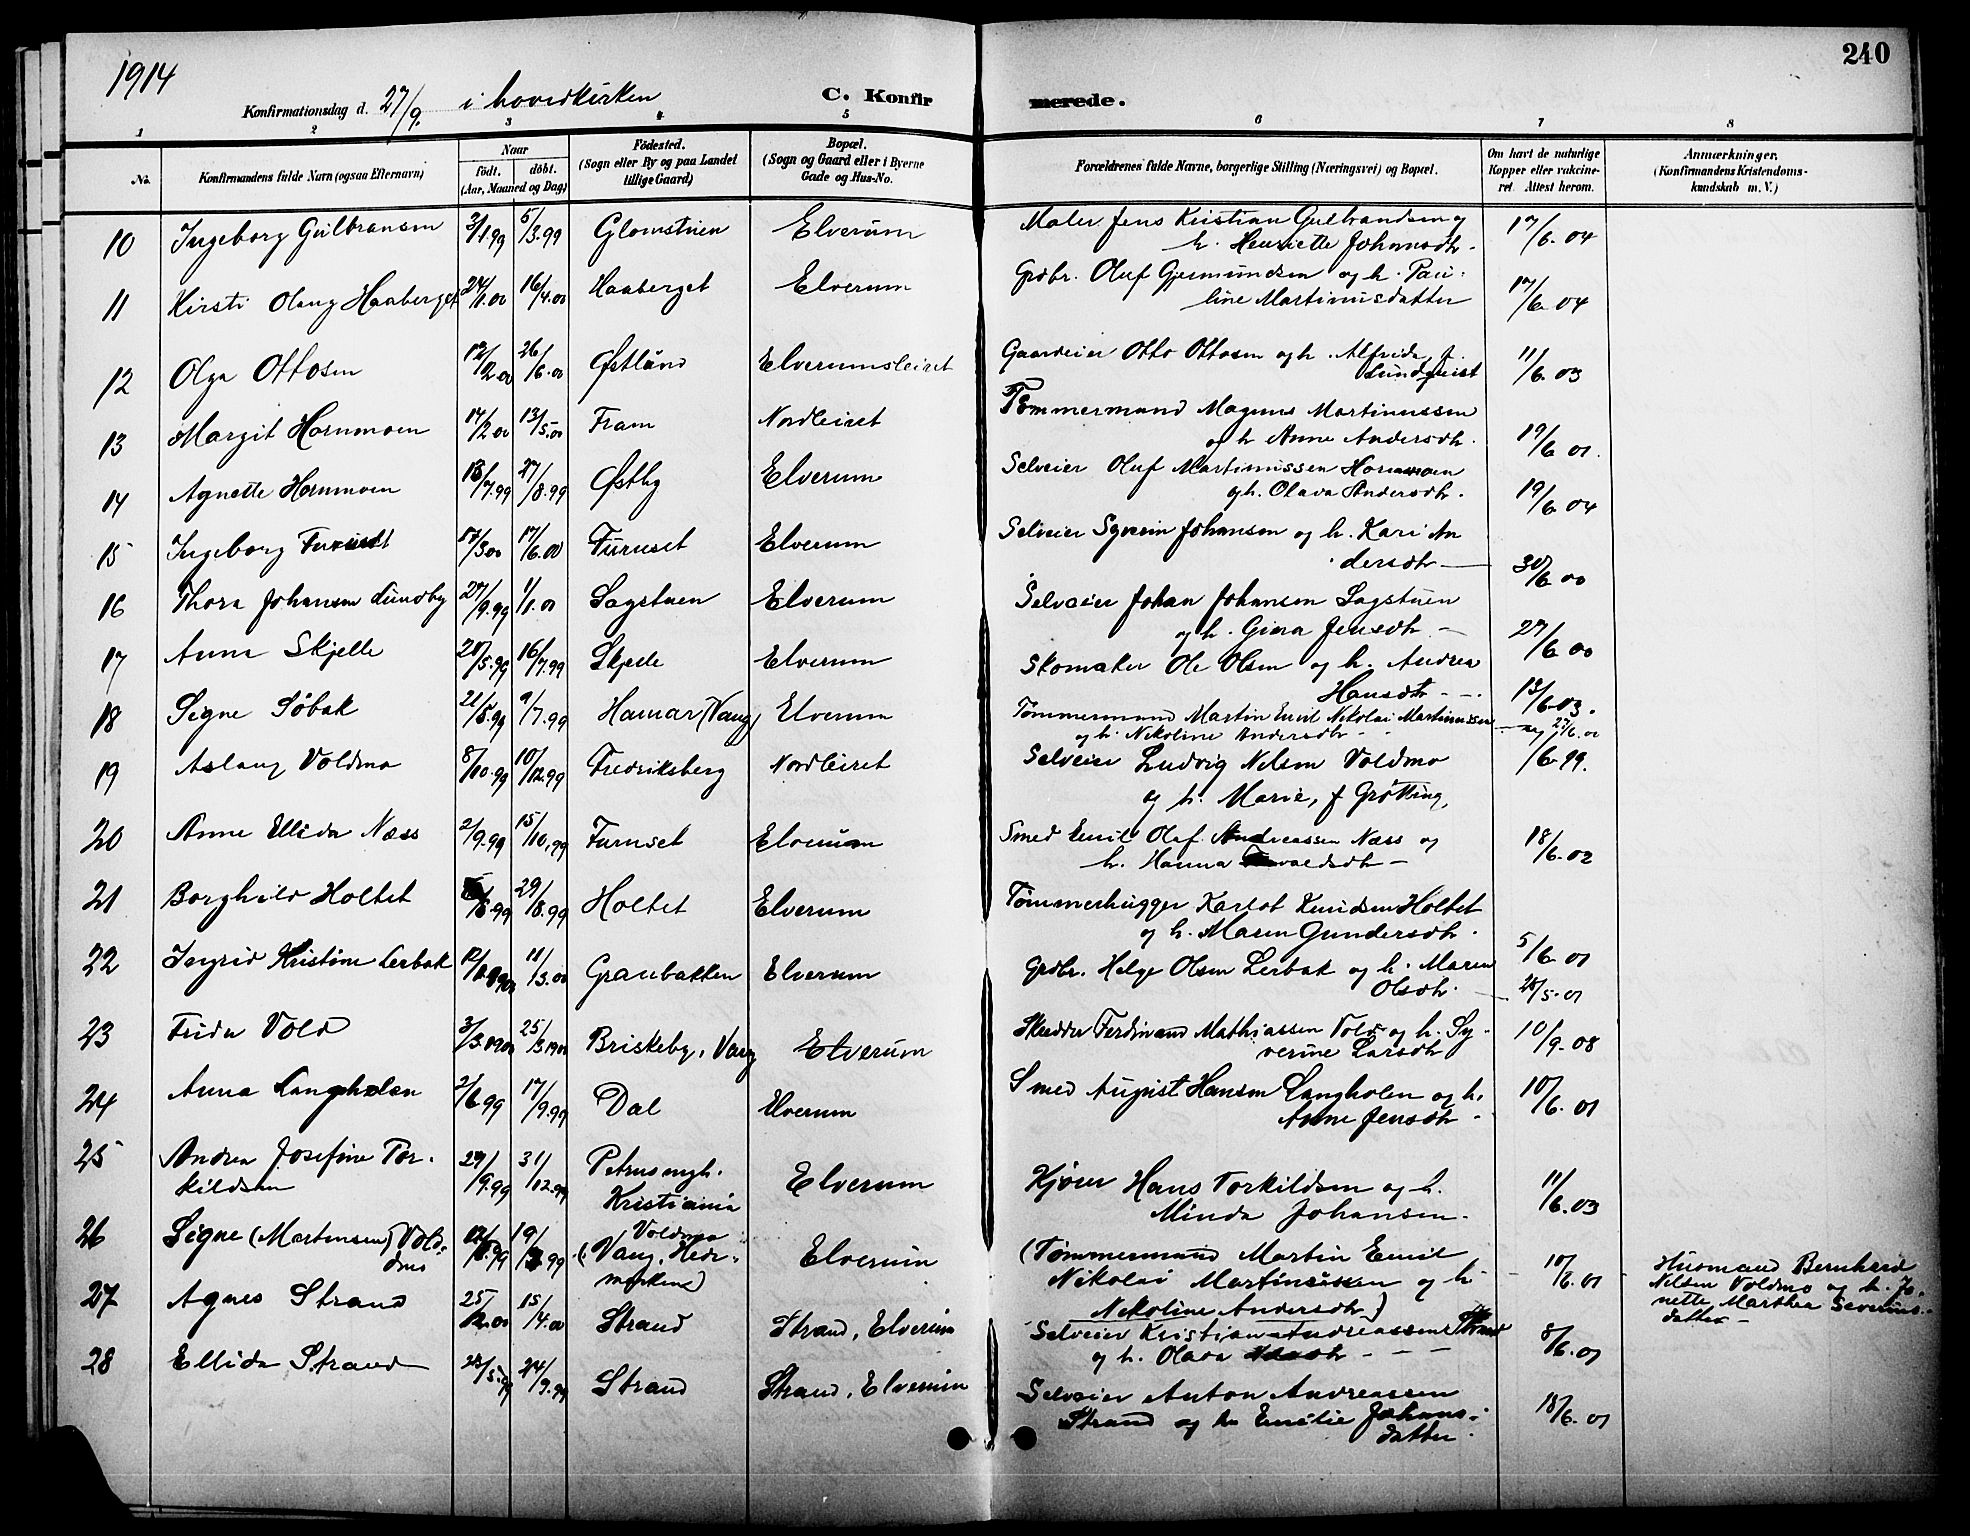 1914
240
Konfirmationsdag d. 27/9. i hovedkirken
C. Konfirmerede.
1 2 3 4 5 6 7 8
No.
Konfirmandens fulde Navn (ogsaa Efternavn)
Naar
födt. döbt.
(Aar, Maaned og Dag)
Födested.
(Sogn eller By og paa Landet
tillige Gaard)
Bopæl.
(Sogn og Gaard eller i Byerne
Gade og Hus-No.
Forældrenes fulde Navne, borgerlige Stilling (Næringsvei) og Bopæl.
Om havt de naturlige
Kopper eller vakcine-
ret. Attest herom.
Anmærkninger.
(Konfirmandens Kristendoms-
kundskab m. V.)
10 Ingeborg Gulbransen 3/1.99 5/3.99 Glomstuen Elverum Maler Jens Kristian Gulbrandsen og 17/6.04
h. Henriette Johansdtr.
11 Kirsti Olaug Haaberget 24/1.00 16/4.00 Haaberget Elverum Grdbr. Oluf Gjermundsen og h. Pau- 17/6.04
line Martinusdatter
12 Olga Ottosen 12/2.00 26/6.00 Østlund Elverumsleiret Gaardeier Otto Ottosen og h. Alfrida f. 11/6.03
Lundquist
13 Margit Hornmoen 14/2.00 13/5.00 Fram Nordleiret Tømmermand Magnus Martinussen
og h Anne Andersdtr. 19/6 01.
14 Agnette Hornmoen 18/7.99 27/8.99 Østby Elverum Selveier Oluf Martinussen Hornmoen
og h. Olava Andersdtr. 19/6 04
15 Ingeborg Furuset 17/3 00 17/6.00 Furuset Elverum Selveier Syverin Johansen og h. Kari An
dersdtr 30/6 00
16 Thora Johansen Lundby 27/9.99 1/1.00 Sagstuen Elverum Selveier Johan Johansen Sagstuen
og h. Gina Jensdtr 27/6 00
17 Anna Skjelle 28/5.99 16/7.99 Skjelle Elverum Skomaker Ole Olsen og h. Andrea
Hansdtr 13/6.03.
18 Signe Søbak 21/5.99 9/7.99 Hamar (Vang) Elverum Tømmermand Martin Emil Nikolai Martinussen
og h. Nikoline Andersdtr 27/6.01
19 Aslaug Voldmo 8/10.99 10/12.99 Fredriksberg Nordleiret Selveier Ludvig Nilsen Voldmo /6 99.
og h. Marie, f Grøtting,
20 Anne Ellida Næss 2/9.99 15/10.99 Furuset Elverum Smed Emil Olaf Andreassen Næss og 18/6.02
h. Hanna
21 Borghild Holtet /6.99 29/8.99 Holtet Elverum Tømmerhugger Karlot Knudsen Holtet
og h. Maren Gundersdtr. 5/6 01
22 Ingrid Kristine Lerbak 11/3.00 Graubakken Elverum Grdbr. Helge Olsen Lerbak og h. Maren
Olsdtr. 28/5.01
23 Frida Vold 3/3.1900 25/3.1900 Briskeby, Vang Elverum Skrædder Ferdinand Mathiassen Vold og h. Sy- 10/9.08
verine Larsdtr
24 Anna Langholen 2/6 99 17/9.99 Dal Elverum Smed August Hansen Langholen og h. 10/6.01
Anne Jensdtr
25 Andrea Josefine Tor- 29/9.99 31/12.99 Petrus mgh. Elverum Kjører Hans Torkildsen og h. 11/6.03
kildsen Kristiania Minda Johansen.
26 Signe (Martensen) Vold- 19/ 99 Voldmo (Vang, Hede- Elverum (Tømmermand Martin Emil 10/6.01 Husmand Bernhard
dmo marken) Nikolai Martinussen og h Nilsen Voldmo og h. Jo-
Nikoline Andersdtr) nette Marthea Severins-
datter
27 Agnes Strand 25/2.00 15/4.00 Strand Strand, Elverum Selveier Kristian Andreassen Strand 8/6.01
og h. Olava
28 Ellida Strand 23/5.99 24/9.99 Strand Strand, Elverum Selveier Anton Andreassen
Strand og h Emilie Johans- 18/6.01
datter.